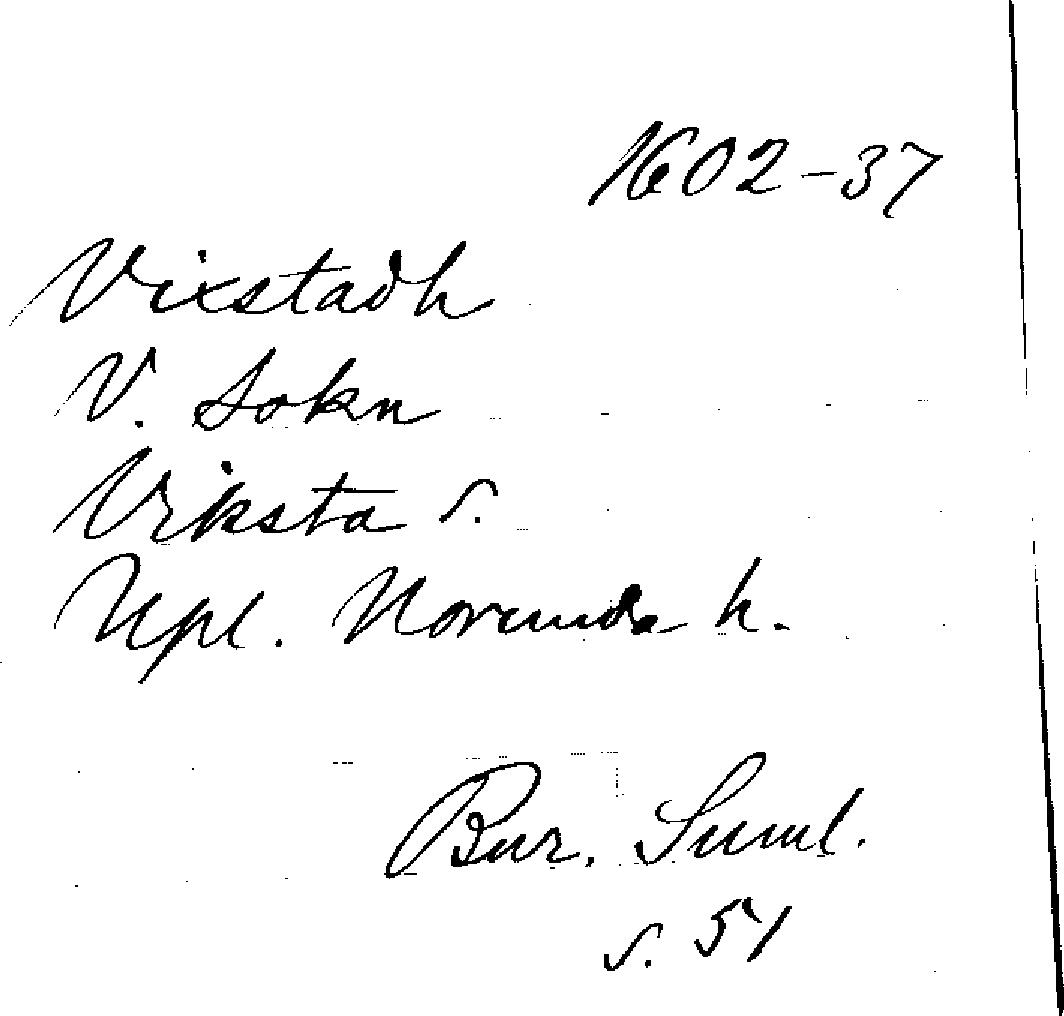 1602-37
Vixstadh
V. Sokn
Viksta s.
Upl. Norunda h.
Bur. Suml.
s. 51